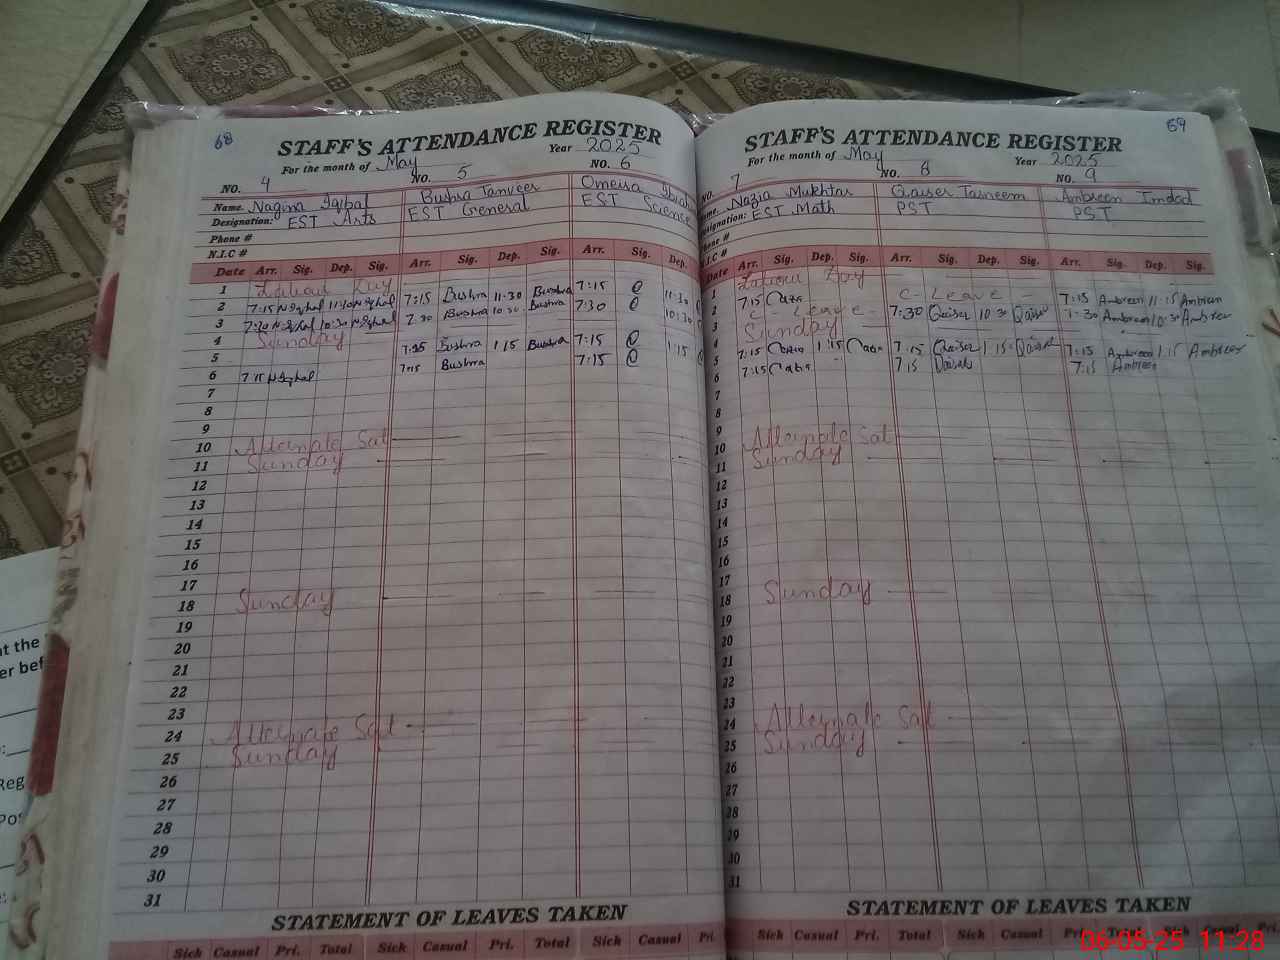 68
STAFF'S ATTENDANCE REGISTER
For the month of May Year 2025
NO. 4 NO. 5 NO. 6
Name. Nagina Iqbal Bushra Tanveer Omeisa
Designation: EST Arts EST General EST Science
Phone #
N.I.C #
Date Arr. Sig. Dep. Sig. Arr. Sig. Dep. Sig. Arr. Sig. Dep.
1 Labour Day
2 7:15 N.Iqbal 11:30 N.Iqbal 7:15 Bushra 11:30 Bushra 7:15 11:30
3 7:30 N.Iqbal 10:30 N.Iqbal 7:30 Bushra 10:30 Bushra 7:30 10:30
4 Sunday
5 7:15 Bushra 1:15 Bushra 7:15 1:15
6 7:15 N.Iqbal 7:15 Bushra 7:15
7
8
9
10 Alternate Sat
11 Sunday
12
13
14
15
16
17
18 Sunday
19
20
21
22
23
24 Alternate Sat
25 Sunday
26
27
28
29
30
31
STATEMENT OF LEAVES TAKEN
Sick Casual Pri. Total Sick Casual Pri. Total Sick Casual Pri.
69
STAFF'S ATTENDANCE REGISTER
For the month of May Year 2025
NO. 7 NO. 8 NO. 9
Name. Nazia Mukhtar Qaiser Tasneem Ambreen Imdad
Designation: EST Math PST PST
Phone #
N.I.C #
Date Arr. Sig. Dep. Sig. Arr. Sig. Dep. Sig. Arr. Sig. Dep. Sig.
1 Labour Day
2 7:15 C-Leave 7:15 Ambreen 11:15 Ambreen
3 C-Leave 7:30 Qaiser 10:30 Qaiser 7:30 Ambreen 10:30 Ambreen
4 Sunday
5 7:15 1:15 7:15 Qaiser 1:15 Qaiser 7:15 Ambreen 1:15 Ambreen
6 7:15 7:15 Qaiser 7:15 Ambreen
7
8
9
10 Alternate Sat
11 Sunday
12
13
14
15
16
17
18 Sunday
19
20
21
22
23
24 Alternate Sat
25 Sunday
26
27
28
29
30
31
STATEMENT OF LEAVES TAKEN
Sick Casual Pri. Total Sick Casual Pri. Total
06-05-25 11:28